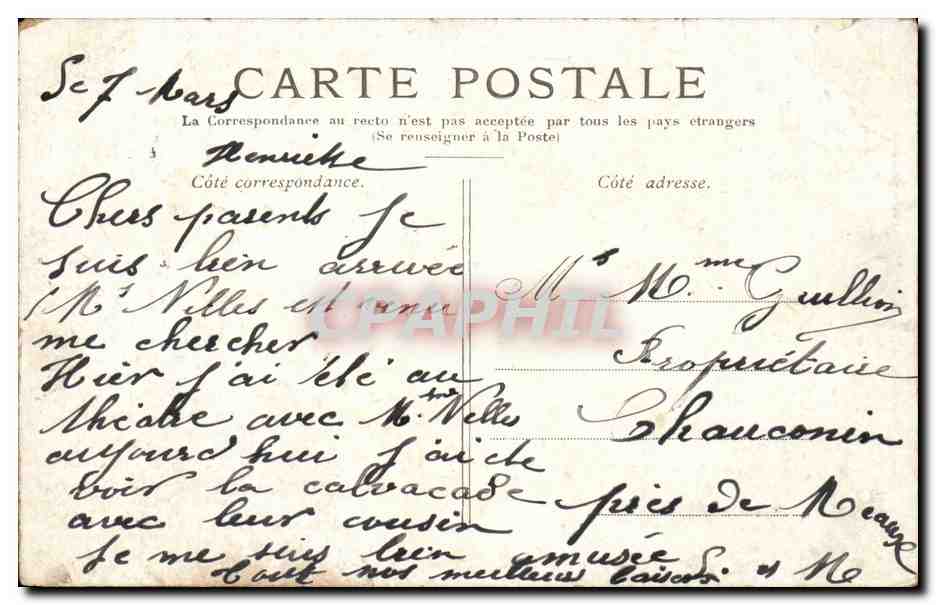 CARTE POSTALE
La Correspondance au recto n'est pas acceptée par tous les pays étrangers
(Se renseigner à la Poste)
Côté correspondance.
Côté adresse.
7 Mars
Henriette
Chers parents Je
suis bien arrivée
Mr Nilles est venu
me chercher
Hier j'ai été au
théâtre avec Mme Nilles
aujourd'hui j'ai été
voir la calvacade
avec leur cousin
Je me suis bien amusée
tout nos meilleur baisers
Mr Mme
Propriétaire
Chauconin
près de Meaux
CPAPHIL